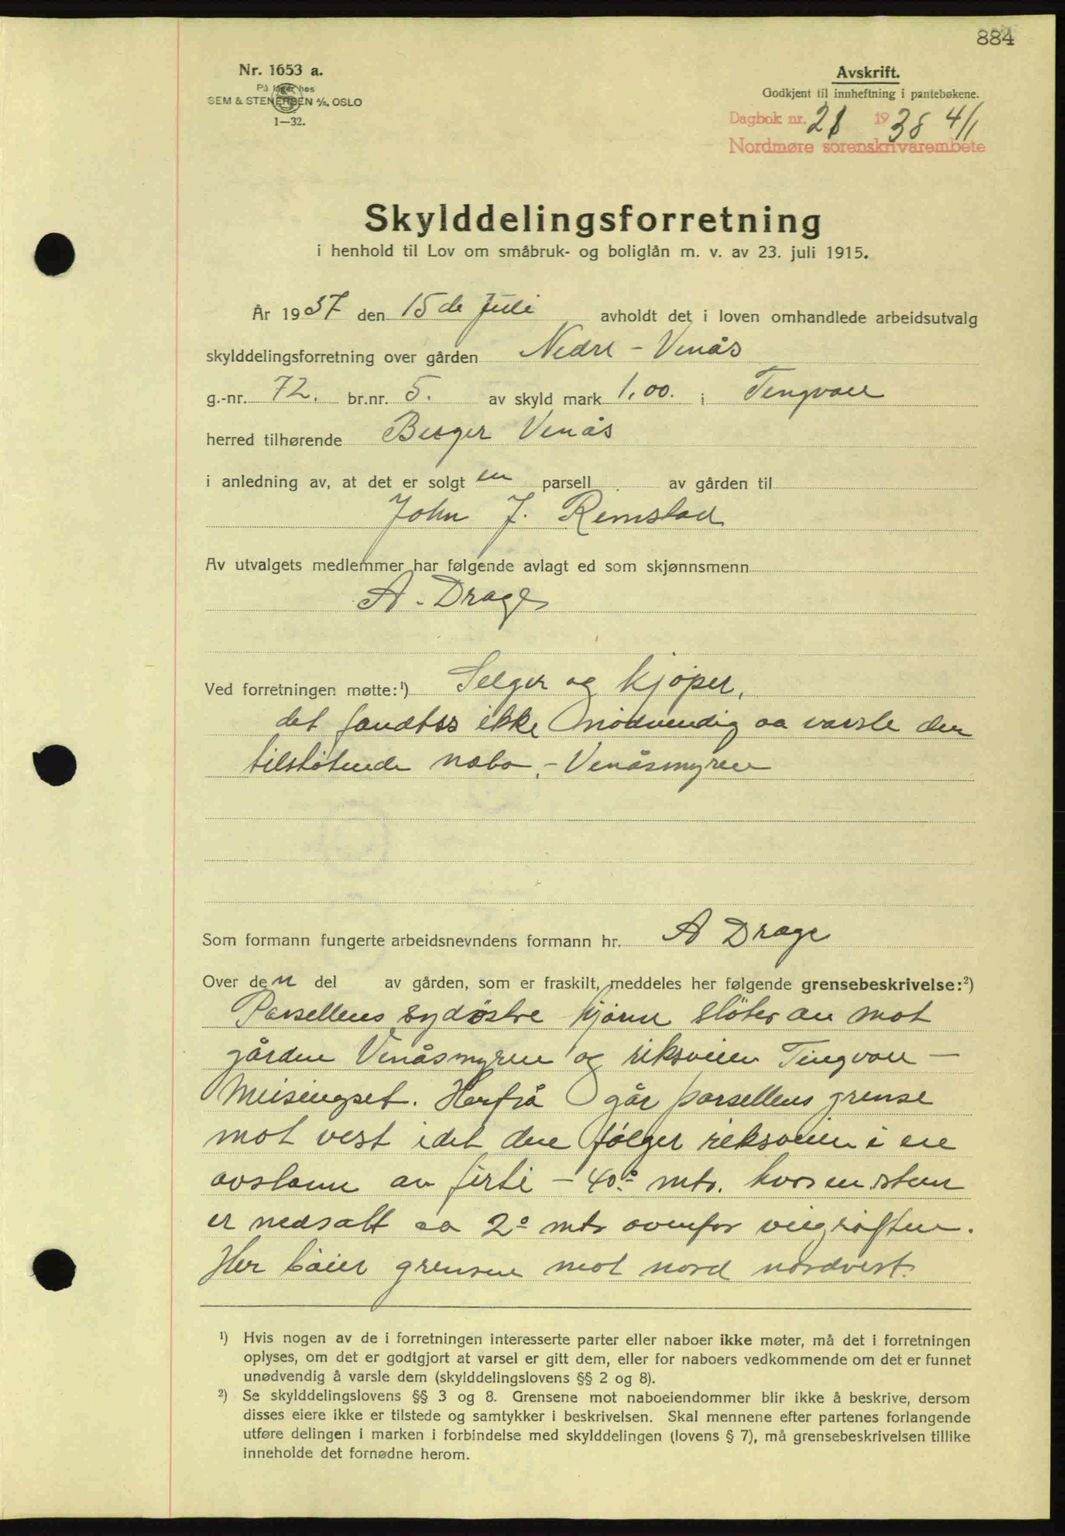 884
Nr. 1653 a.
På lager hos
SEM & STENERSEN A/S. OSLO
1—32.
Avskrift.
Godkjent til innheftning i pantebøkene.
Dagbok nr. 21 1938 4/1
Nordmøre sorenskrivarembete
Skylddelingsforretning
i henhold til Lov om småbruk- og boliglån m. v. av 23. juli 1915.
År 1937 den 15de Juli avholdt det i loven omhandlede arbeidsutvalg
skylddelingsforretning over gården Nedre - Venås
g.-nr. 72. br.nr. 5. av skyld mark 1,00. i Tingvoll
herred tilhørende Birger Venås
i anledning av, at det er solgt en parsell . av gården til
John J. Remstad
Av utvalgets medlemmer har følgende avlagt ed som skjønnsmenn
A. Drage
Ved forretningen møtte:¹) Selger og kjøper,
det fandtes ikke nødvendig aa varsle den
tilstøtende nabo, - Venåsmyren
Som formann fungerte arbeidsnevndens formann hr. A Drage
Over den del av gården, som er fraskilt, meddeles her følgende grensebeskrivelse:²)
Parsellens sydøstre hjørne støter an mot
gården Venåsmyren og riksveien Tingvoll —
Meisingset. Herfrå går parsellens grense
mot vest idet den følger riksveien i en
avstann av firti - 40.- mtr. hvor en sten
er nedsatt ca 2- mtr ovenfor veigrøften.
Her bøier grensen mot nord nordvest.
¹) Hvis nogen av de i forretningen interesserte parter eller naboer ikke møter, må det i forretningen
oplyses, om det er godtgjort at varsel er gitt dem, eller for naboers vedkommende om det er funnet
unødvendig å varsle dem (skylddelingslovens §§ 2 og 8).
²) Se skylddelingslovens §§ 3 og 8. Grensene mot naboeiendommer blir ikke å beskrive, dersom
disses eiere ikke er tilstede og samtykker i beskrivelsen. Skal mennene efter partenes forlangende
utføre delingen i marken i forbindelse med skylddelingen (lovens § 7), må grensebeskrivelsen tillike
inneholde det fornødne herom.